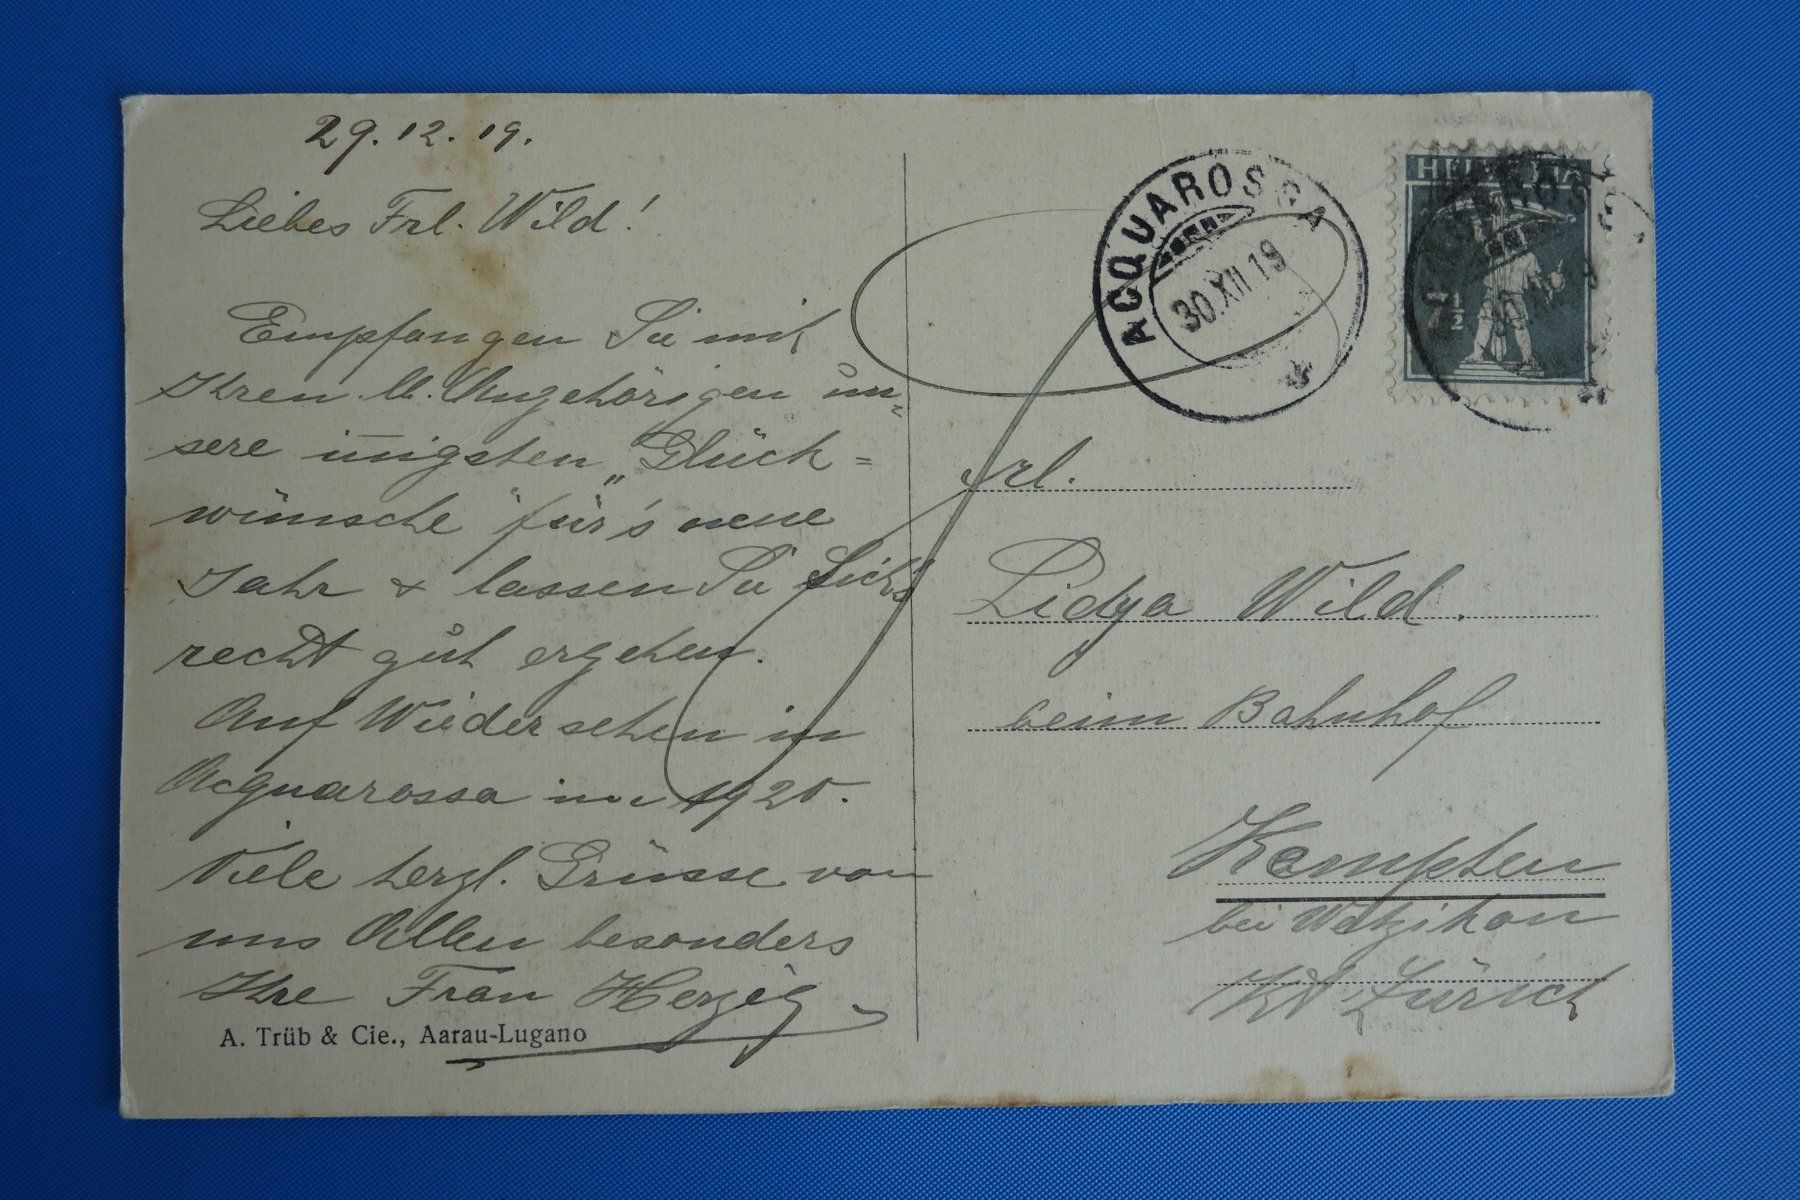 29.12.19.
Liebes Frl. Wild!
Empfangen Sie mit
Ihren lb. Angehörigen un=
sere innigsten „Glück=
wünsche" für's neue
Jahr & lassen Sie Sich's
recht gut ergehen.
Auf Wiedersehen in
Acquarossa im 1920.
Viele herzl. Grüsse von
uns Allen besonders
Ihre Frau Herzig
A. Trüb & Cie., Aarau-Lugano
ACQUAROSSA
30.XII.19
HELVETIA
7½
Frl.
Lidya Wild.
beim Bahnhof
Kempten
bei Wetzikon
Kt Zürich